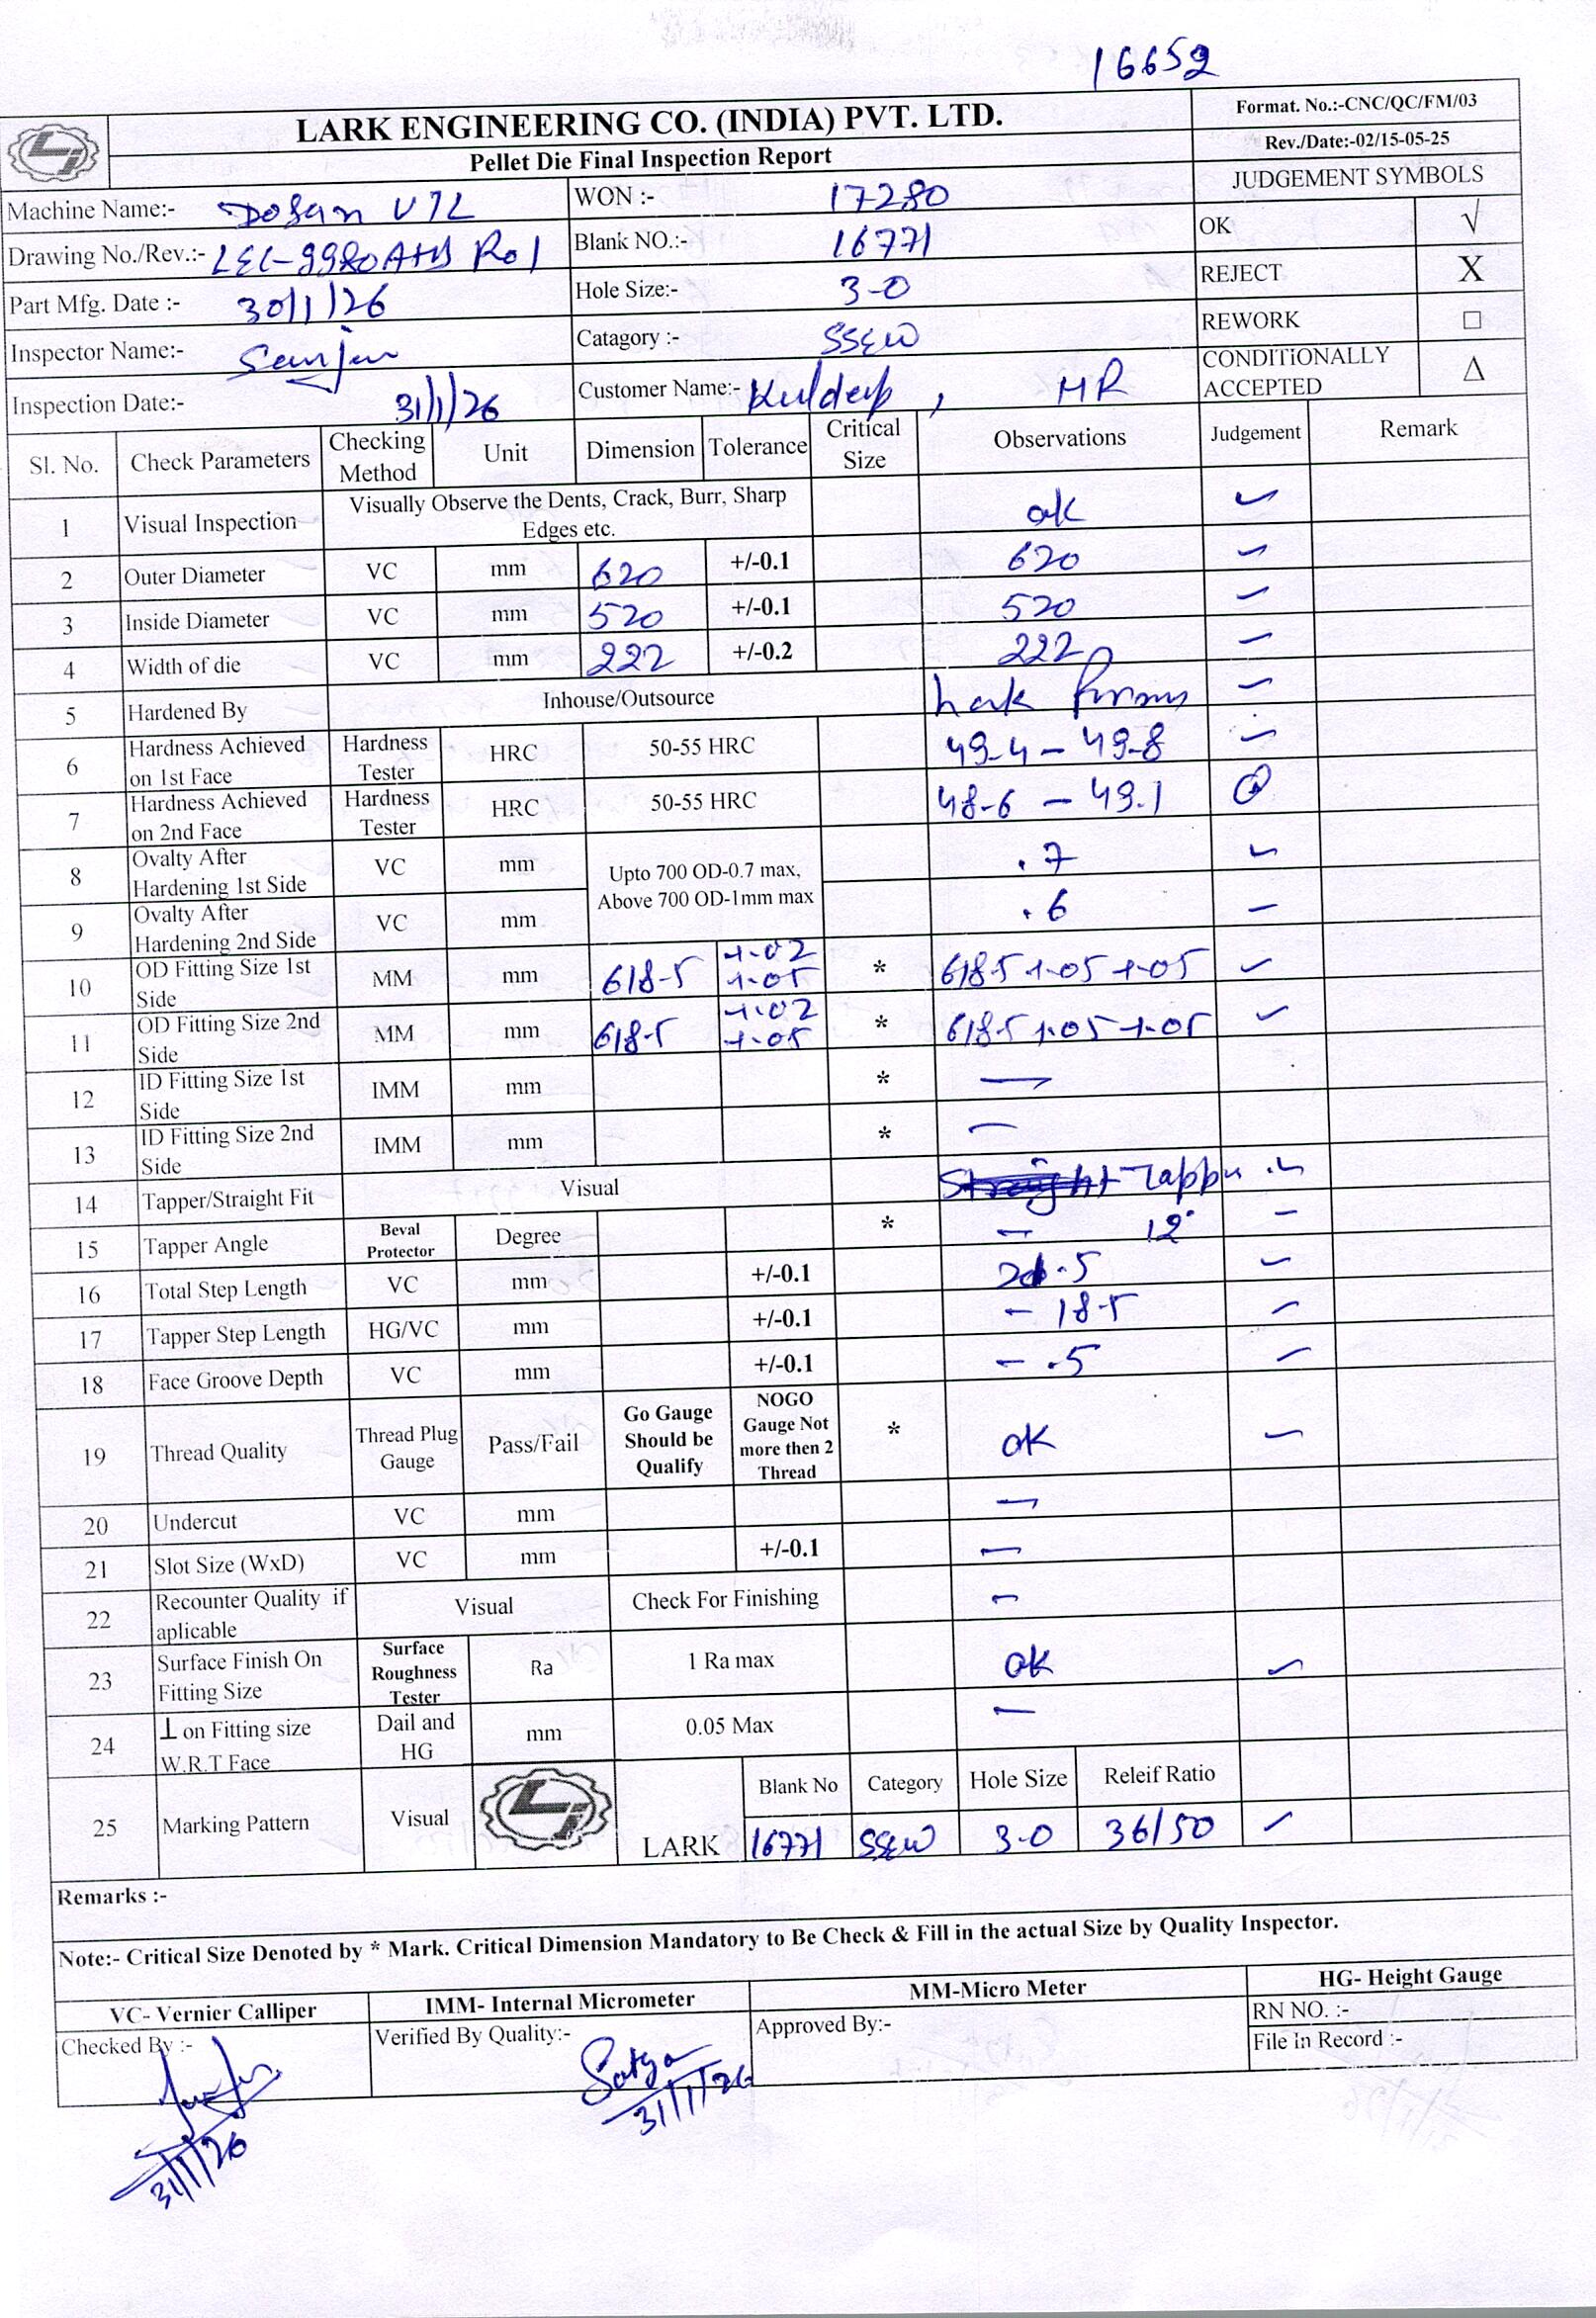 16652
LARK ENGINEERING CO. (INDIA) PVT. LTD.
Format. No.:-CNC/QC/FM/03
Pellet Die Final Inspection Report
Rev./Date:-02/15-05-25
Machine Name:- Dosan VTL WON :- 17280 JUDGEMENT SYMBOLS
Drawing No./Rev.:- LEC-9980A+B R01 Blank NO.:- 16771 OK √
Part Mfg. Date :- 30/1/26 Hole Size:- 3-0 REJECT X
Inspector Name:- Catagory :- SSEW REWORK □
Inspection Date:- 31/1/26 Customer Name:- Kuldeep, HR CONDITiONALLY ACCEPTED Δ
Sl. No. Check Parameters Checking Method Unit Dimension Tolerance Critical Size Observations Judgement Remark
1 Visual Inspection Visually Observe the Dents, Crack, Burr, Sharp Edges etc. ok ✓
2 Outer Diameter VC mm 620 +/-0.1 620 ✓
3 Inside Diameter VC mm 520 +/-0.1 520 ✓
4 Width of die VC mm 222 +/-0.2 222 ✓
5 Hardened By Inhouse/Outsource Lark ✓
6 Hardness Achieved on 1st Face Hardness Tester HRC 50-55 HRC 49-4 - 49-8 ✓
7 Hardness Achieved on 2nd Face Hardness Tester HRC 50-55 HRC 48-6 - 49.1
8 Ovalty After Hardening 1st Side VC mm Upto 700 OD-0.7 max, Above 700 OD-1mm max .7 ✓
9 Ovalty After Hardening 2nd Side VC mm .6 ✓
10 OD Fitting Size 1st Side MM mm 618-5 +.02 +.05 * 618-5 +.05 +.05 ✓
11 OD Fitting Size 2nd Side MM mm 618-5 +.02 +.05 * 618-5 +.05 +.05 ✓
12 ID Fitting Size 1st Side IMM mm * —
13 ID Fitting Size 2nd Side IMM mm * —
14 Tapper/Straight Fit Visual Straight Tapper ✓
15 Tapper Angle Beval Protector Degree * — 12° ✓
16 Total Step Length VC mm +/-0.1 ✓
17 Tapper Step Length HG/VC mm +/-0.1 - 18-5 ✓
18 Face Groove Depth VC mm +/-0.1 - .5 ✓
19 Thread Quality Thread Plug Gauge Pass/Fail Go Gauge Should be Qualify NOGO Gauge Not more then 2 Thread * ok ✓
20 Undercut VC mm —
21 Slot Size (WxD) VC mm +/-0.1 —
22 Recounter Quality if aplicable Visual Check For Finishing —
23 Surface Finish On Fitting Size Surface Roughness Tester Ra 1 Ra max ok ✓
24 ⊥ on Fitting size W.R.T Face Dail and HG mm 0.05 Max —
25 Marking Pattern Visual LARK Blank No Category Hole Size Releif Ratio
16771 SSEW 3-0 36/50 ✓
Remarks :-
Note:- Critical Size Denoted by * Mark. Critical Dimension Mandatory to Be Check & Fill in the actual Size by Quality Inspector.
VC- Vernier Calliper IMM- Internal Micrometer MM-Micro Meter HG- Height Gauge
Checked By :- Verified By Quality:- Approved By:- RN NO. :-
File In Record :-
Satya
31/1/26
31/1/26